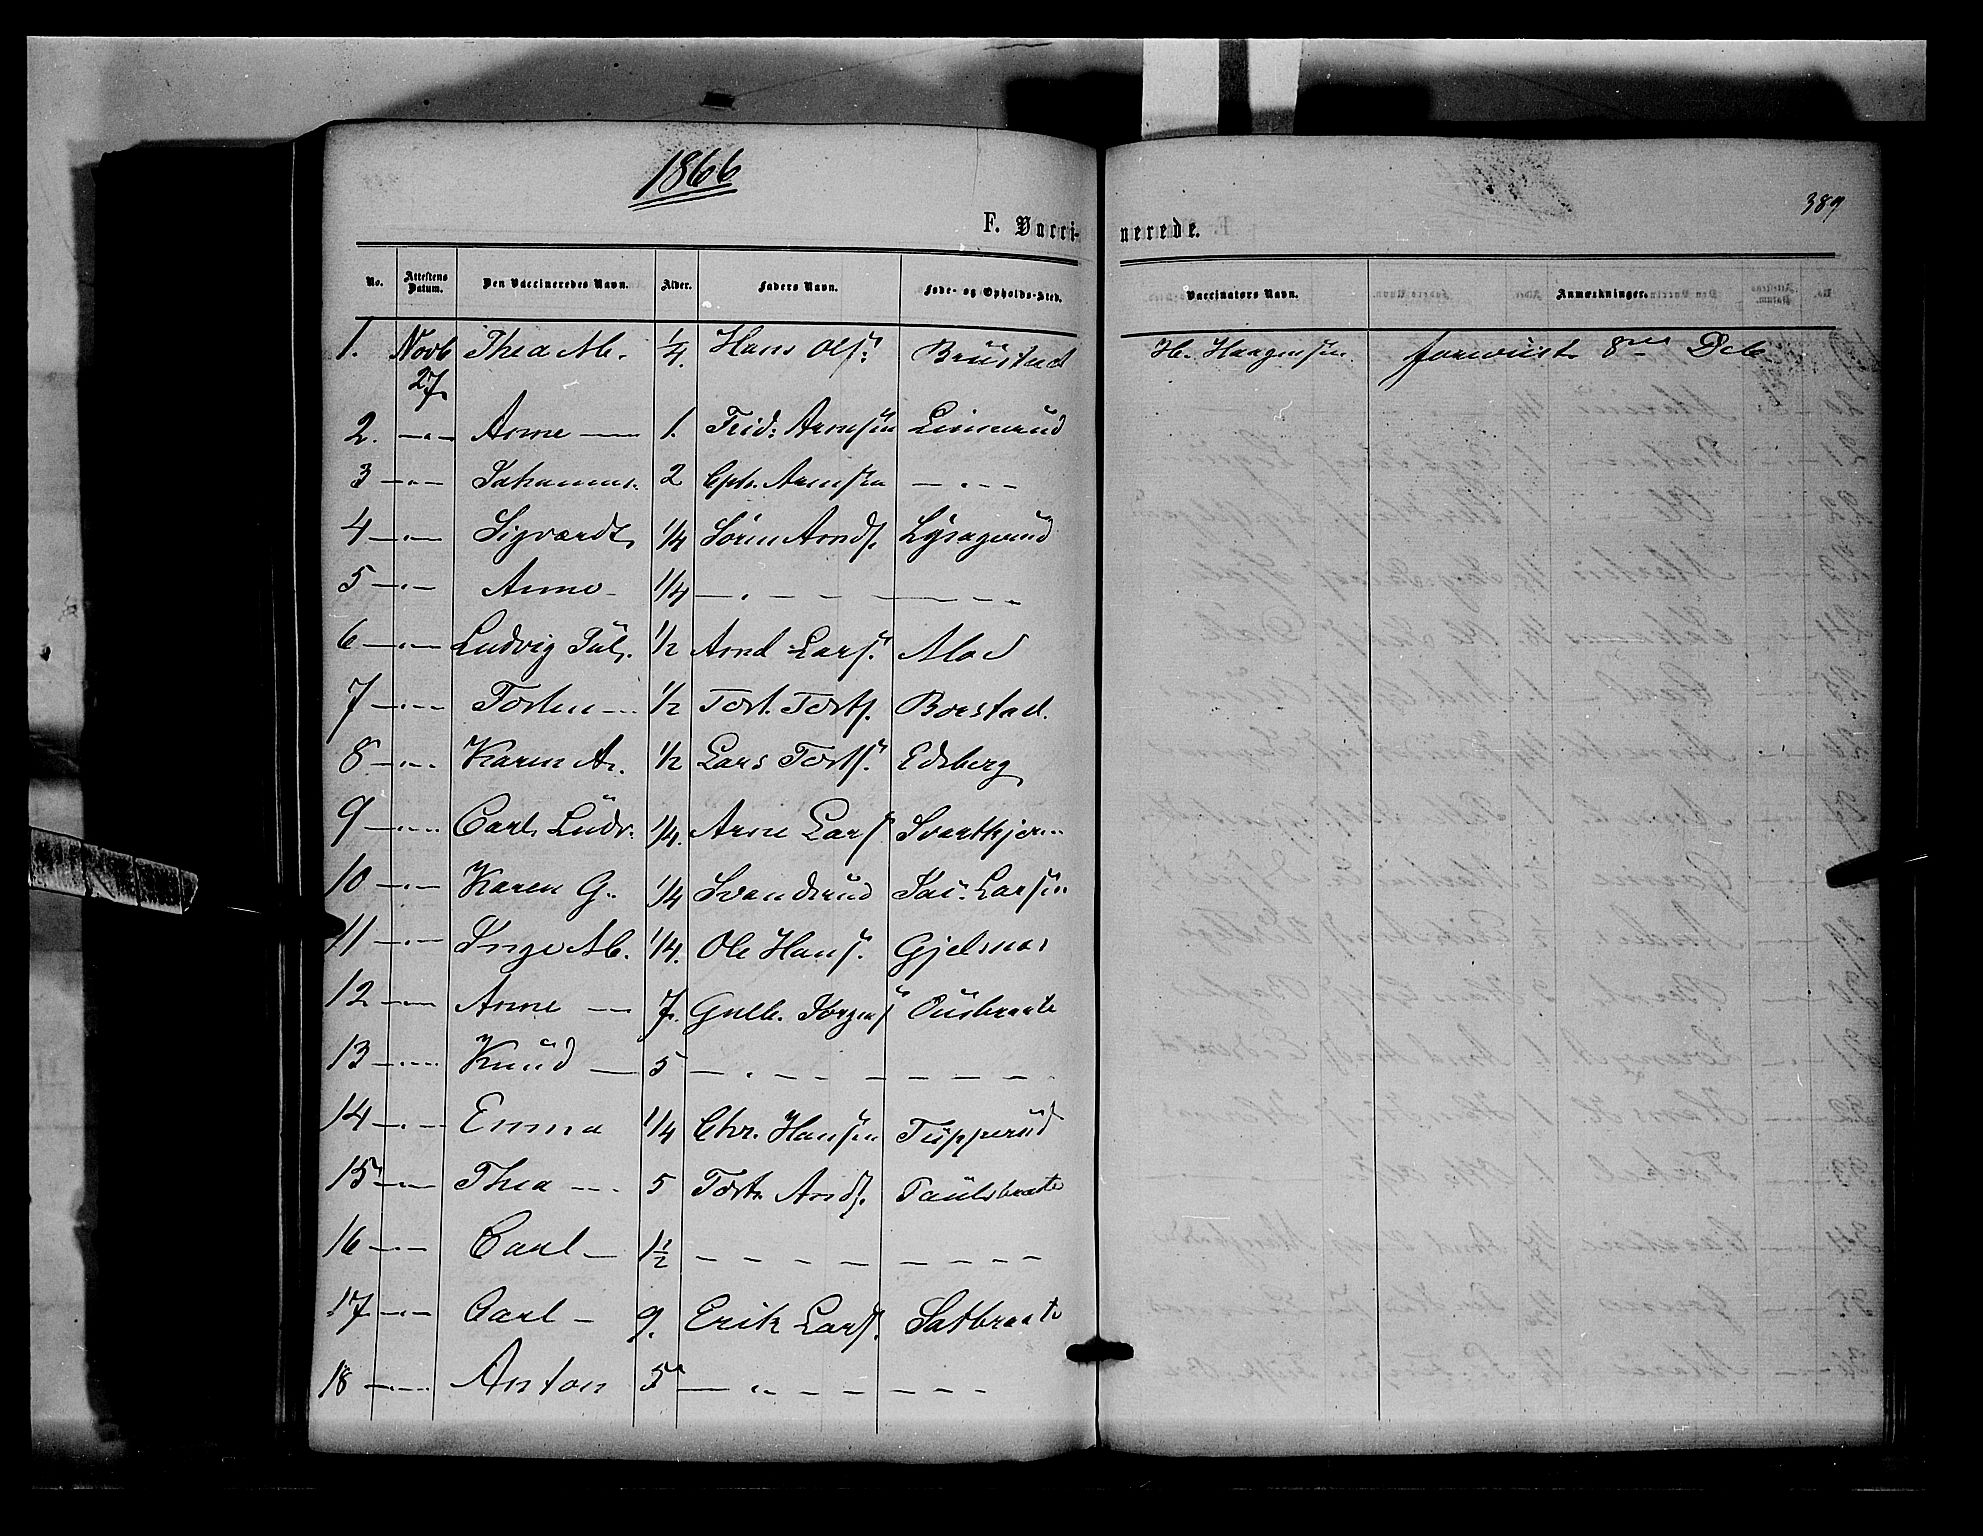 1866
389
F. Vacci- nerede.
No. Attestens Datum. Den Vaccineredes Navn. Alder. Faders Navn. Føde- og Opholds-Sted. Vaccinators Navn. Anmærkninger.
1. Novb 27 Thea M. 1/4. Hans Ols. Brüstad H. Haagensen forevist 8 Deb
2. —"— Anne — 1. Frid: Arnesen Linnerüd
3 —"— Johannes. 2 Chr. Arnesen — " — —
4 —"— Sigvardt 1/4 Sören Arnds. Lysagerüd
5 —"— Anne — 1/4 — " — — — — — —
6 —"— Ludvig Jül. 1/2 Arnd Lars. Moe
7 —"— Torsten — 1/2 Torst. Torsts. Borstad.
8 —"— Karen A. 1/2 Lars Torsts. Edsberg
9 —"— Carl Lüdv. 1/4. Arne Lars. Svartkjern
10 —"— Karen G. 1/4 Svendsrüd Jac. Larsen
11 —"— Inge M. 1/4. Ole Hans. Gjelsnæs
12 —"— Anne — 7. Gulb. Jörgens. Ousbraate
13 —"— Knüd — 5 — " — — — — — —
14 —"— Emma 1/4 Chr. Hansen Tüpperüd
15 —"— Thea — 5 Torst. Ands. Paülsbraate
16 —"— Carl — 1 1/2 — — — — — — — —
17 —"— Carl — 9. Erik Lars. Satbraate
18 —"— Anton 5 — " — — — — — —